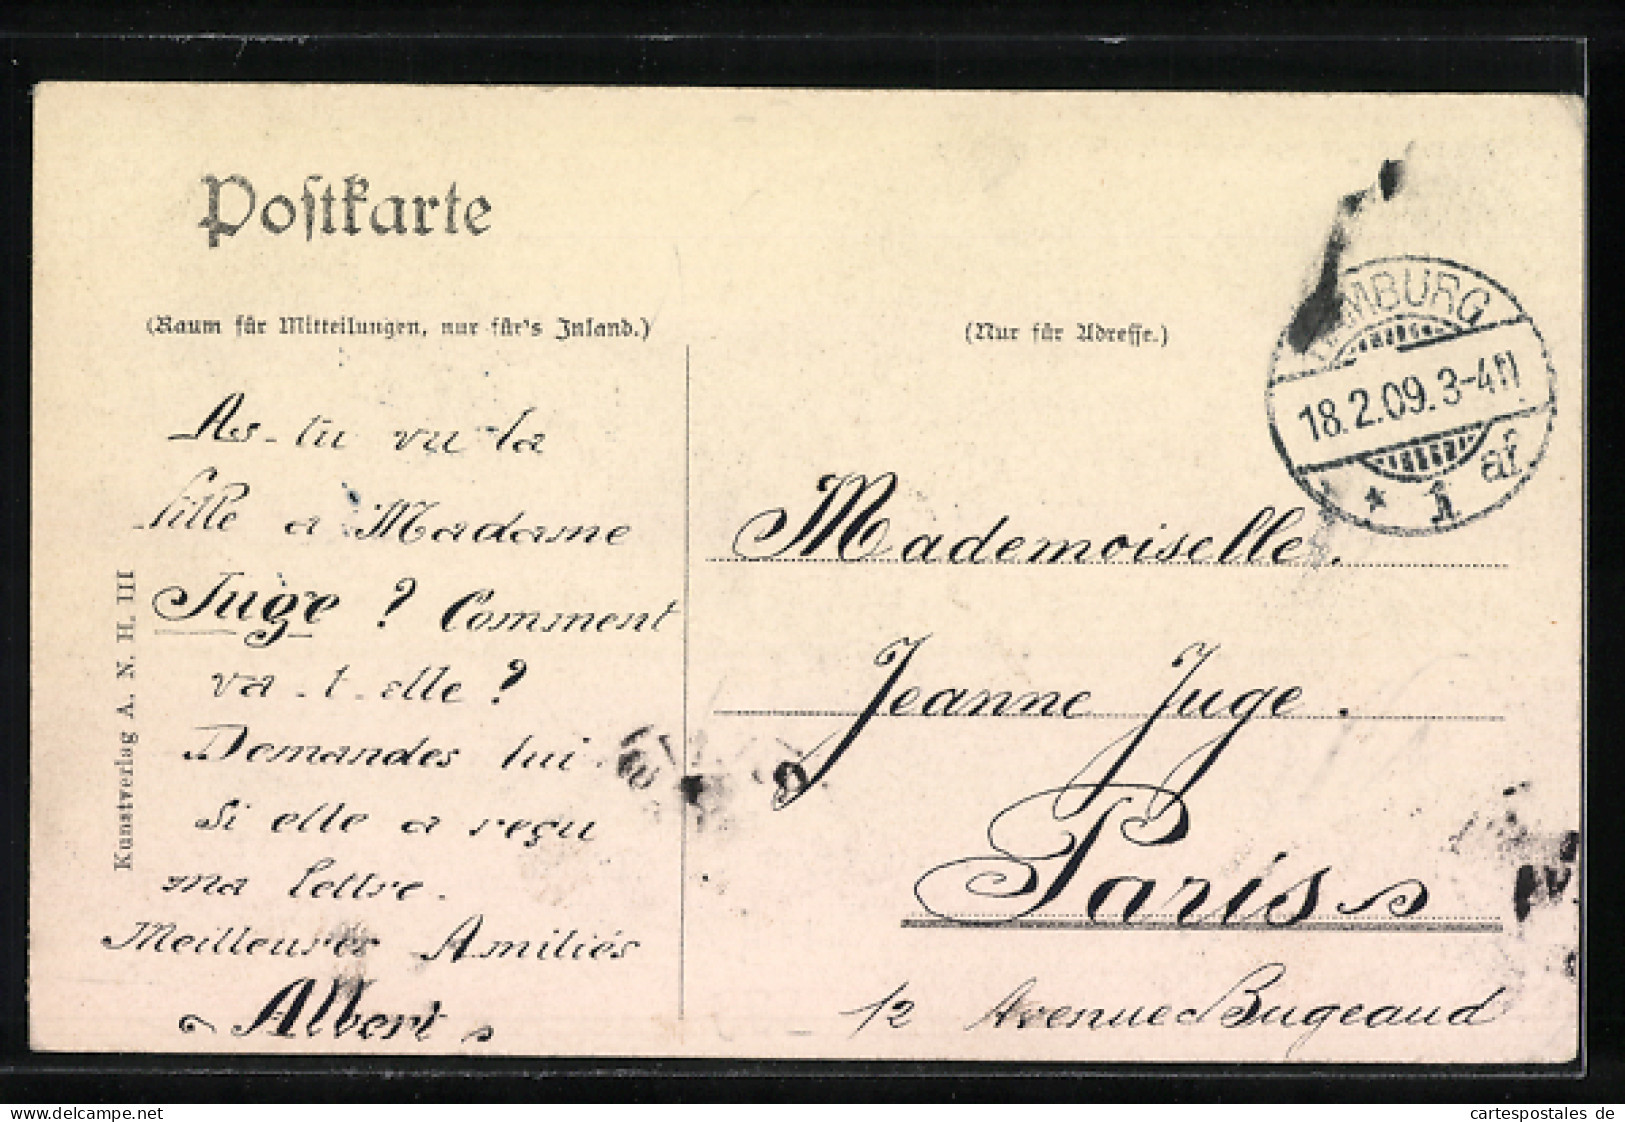 Postkarte
(Raum für Mitteilungen, nur für's Inland.)
(Nur für Adresse.)
As-tu vu la
fille a Madame
Juge ? Comment
va-t-elle ?
Demandes lui
Si elle a reçu
ma lettre.
Meilleures Amitiés
Albert
Kunstverlag A. N. H. III
HAMBURG
18.2.09.3-4N
* 1 af
Mademoiselle.
Jeanne Juge.
Paris
12 Avenue Bugeaud
the-million-cards
cartespostales de